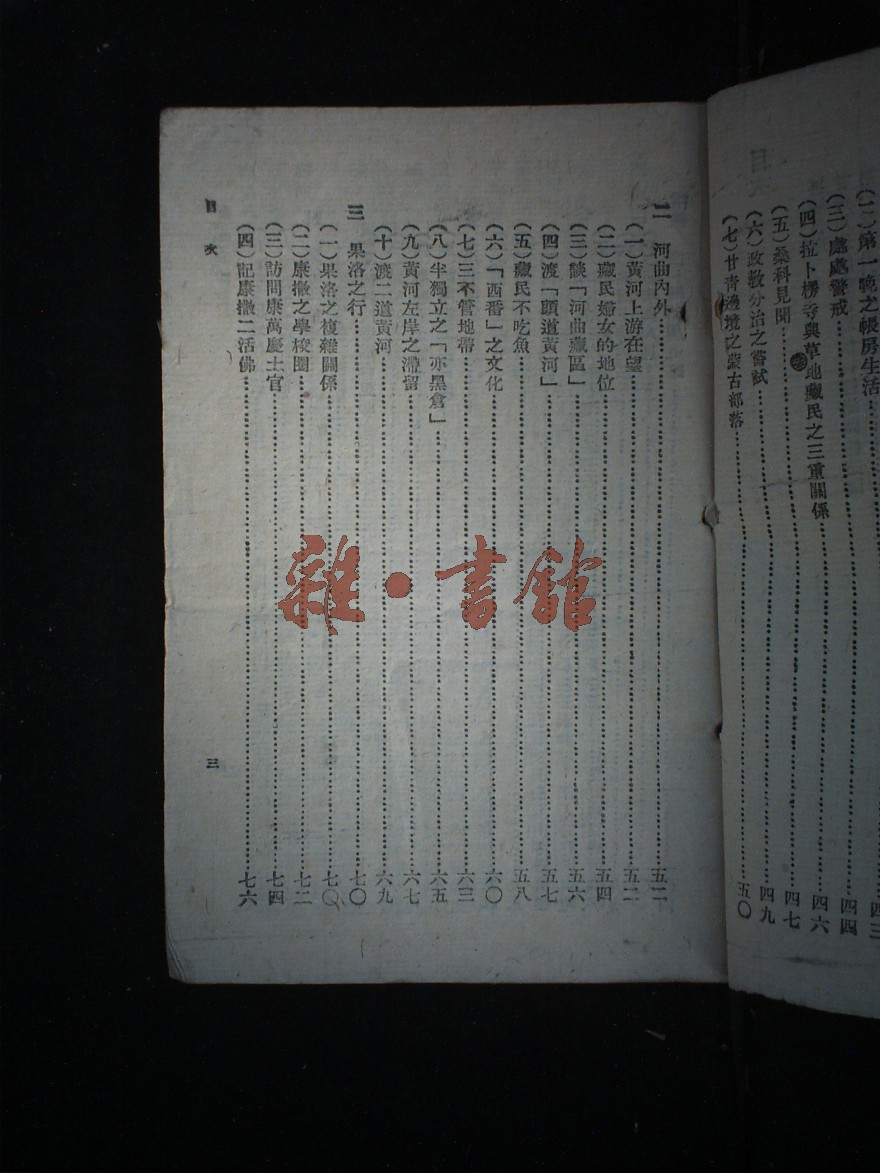 (二)第一晚之帳房生活……四三
(三)處處警戒……四四
(四)拉卜楞寺與草地藏民之三重關係……四六
(五)桑科見聞……四七
(六)政教分治之嘗試……四九
(七)甘青邊境之蒙古部落……五〇
二 河曲內外……五二
(一)黃河上游在望……五二
(二)藏民婦女的地位……五四
(三)談「河曲藏區」……五六
(四)渡「頭道黃河」……五七
(五)藏民不吃魚……五八
(六)「西番」之文化……六〇
(七)三不管地帶……六三
(八)半獨立之「亦黑倉」……六五
(九)黃河左岸之滯留……六七
(十)渡二道黃河……六九
三 果洛之行……七〇
(一)果洛之複雜關係……七〇
(二)康撒之學校園……七二
(三)訪問康萬慶土官……七四
(四)記康撒二活佛……七六
目次
三
雜·書館